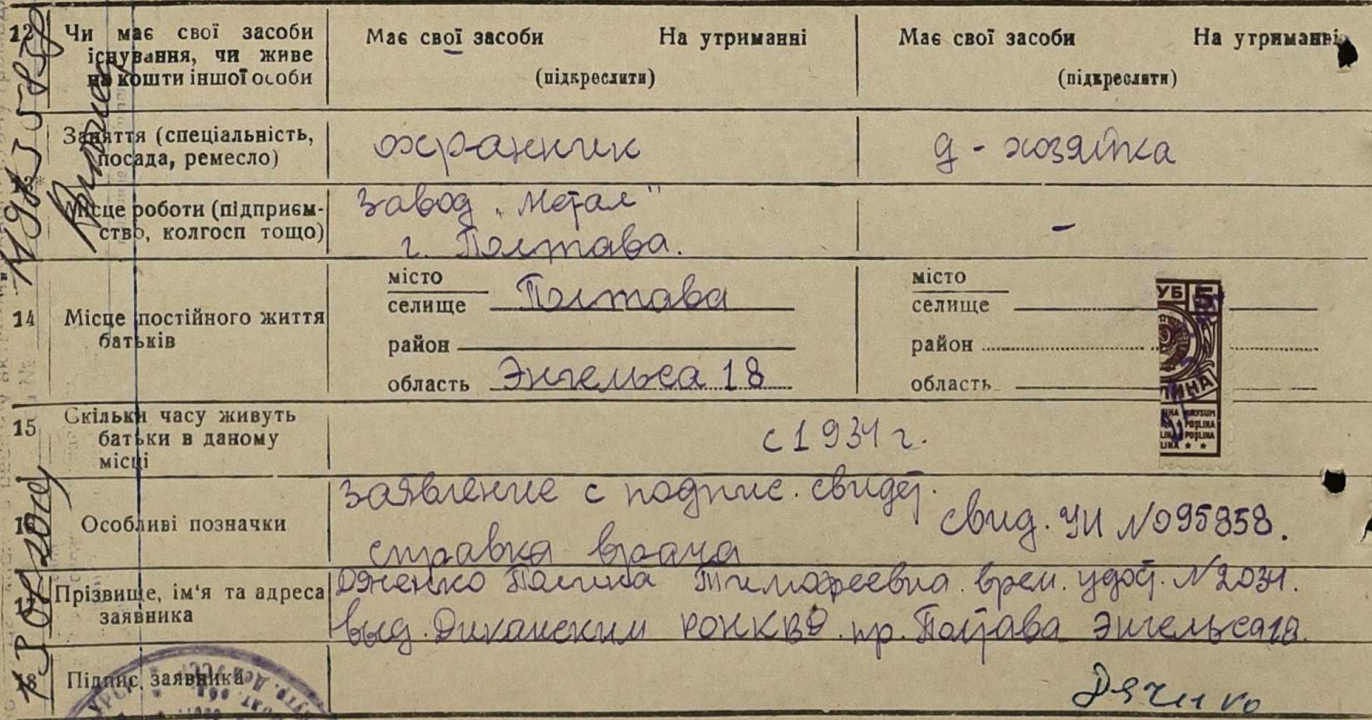 12 Чи має свої засоби існування, чи живе на кошти іншої особи
Має свої засоби На утриманні
(підкреслити)
Має свої засоби На утриманні
(підкреслити)
Заняття (спеціальність, посада, ремесло)
охранник
д - хозяйка
Місце роботи (підприєм-
ство, колгосп тощо)
завод „Метал"
г. Полтава.
-
14 Місце постійного життя батьків
місто
селище Полтава
район
область Энгельса 18
місто
селище
район
область
15 Скільки часу живуть батьки в даному місці
с 1934 г.
Особливі позначки
заявление с подпис. свидет.
справка врача
свид. УИ №095858.
Прізвище, ім'я та адреса заявника
Дяченко Полина Тимофеевна врем. удост. №2034.
выд. Диканским РОНКВД. пр. Полтава Энгельса 18.
18 Підпис заявника
Дяченко